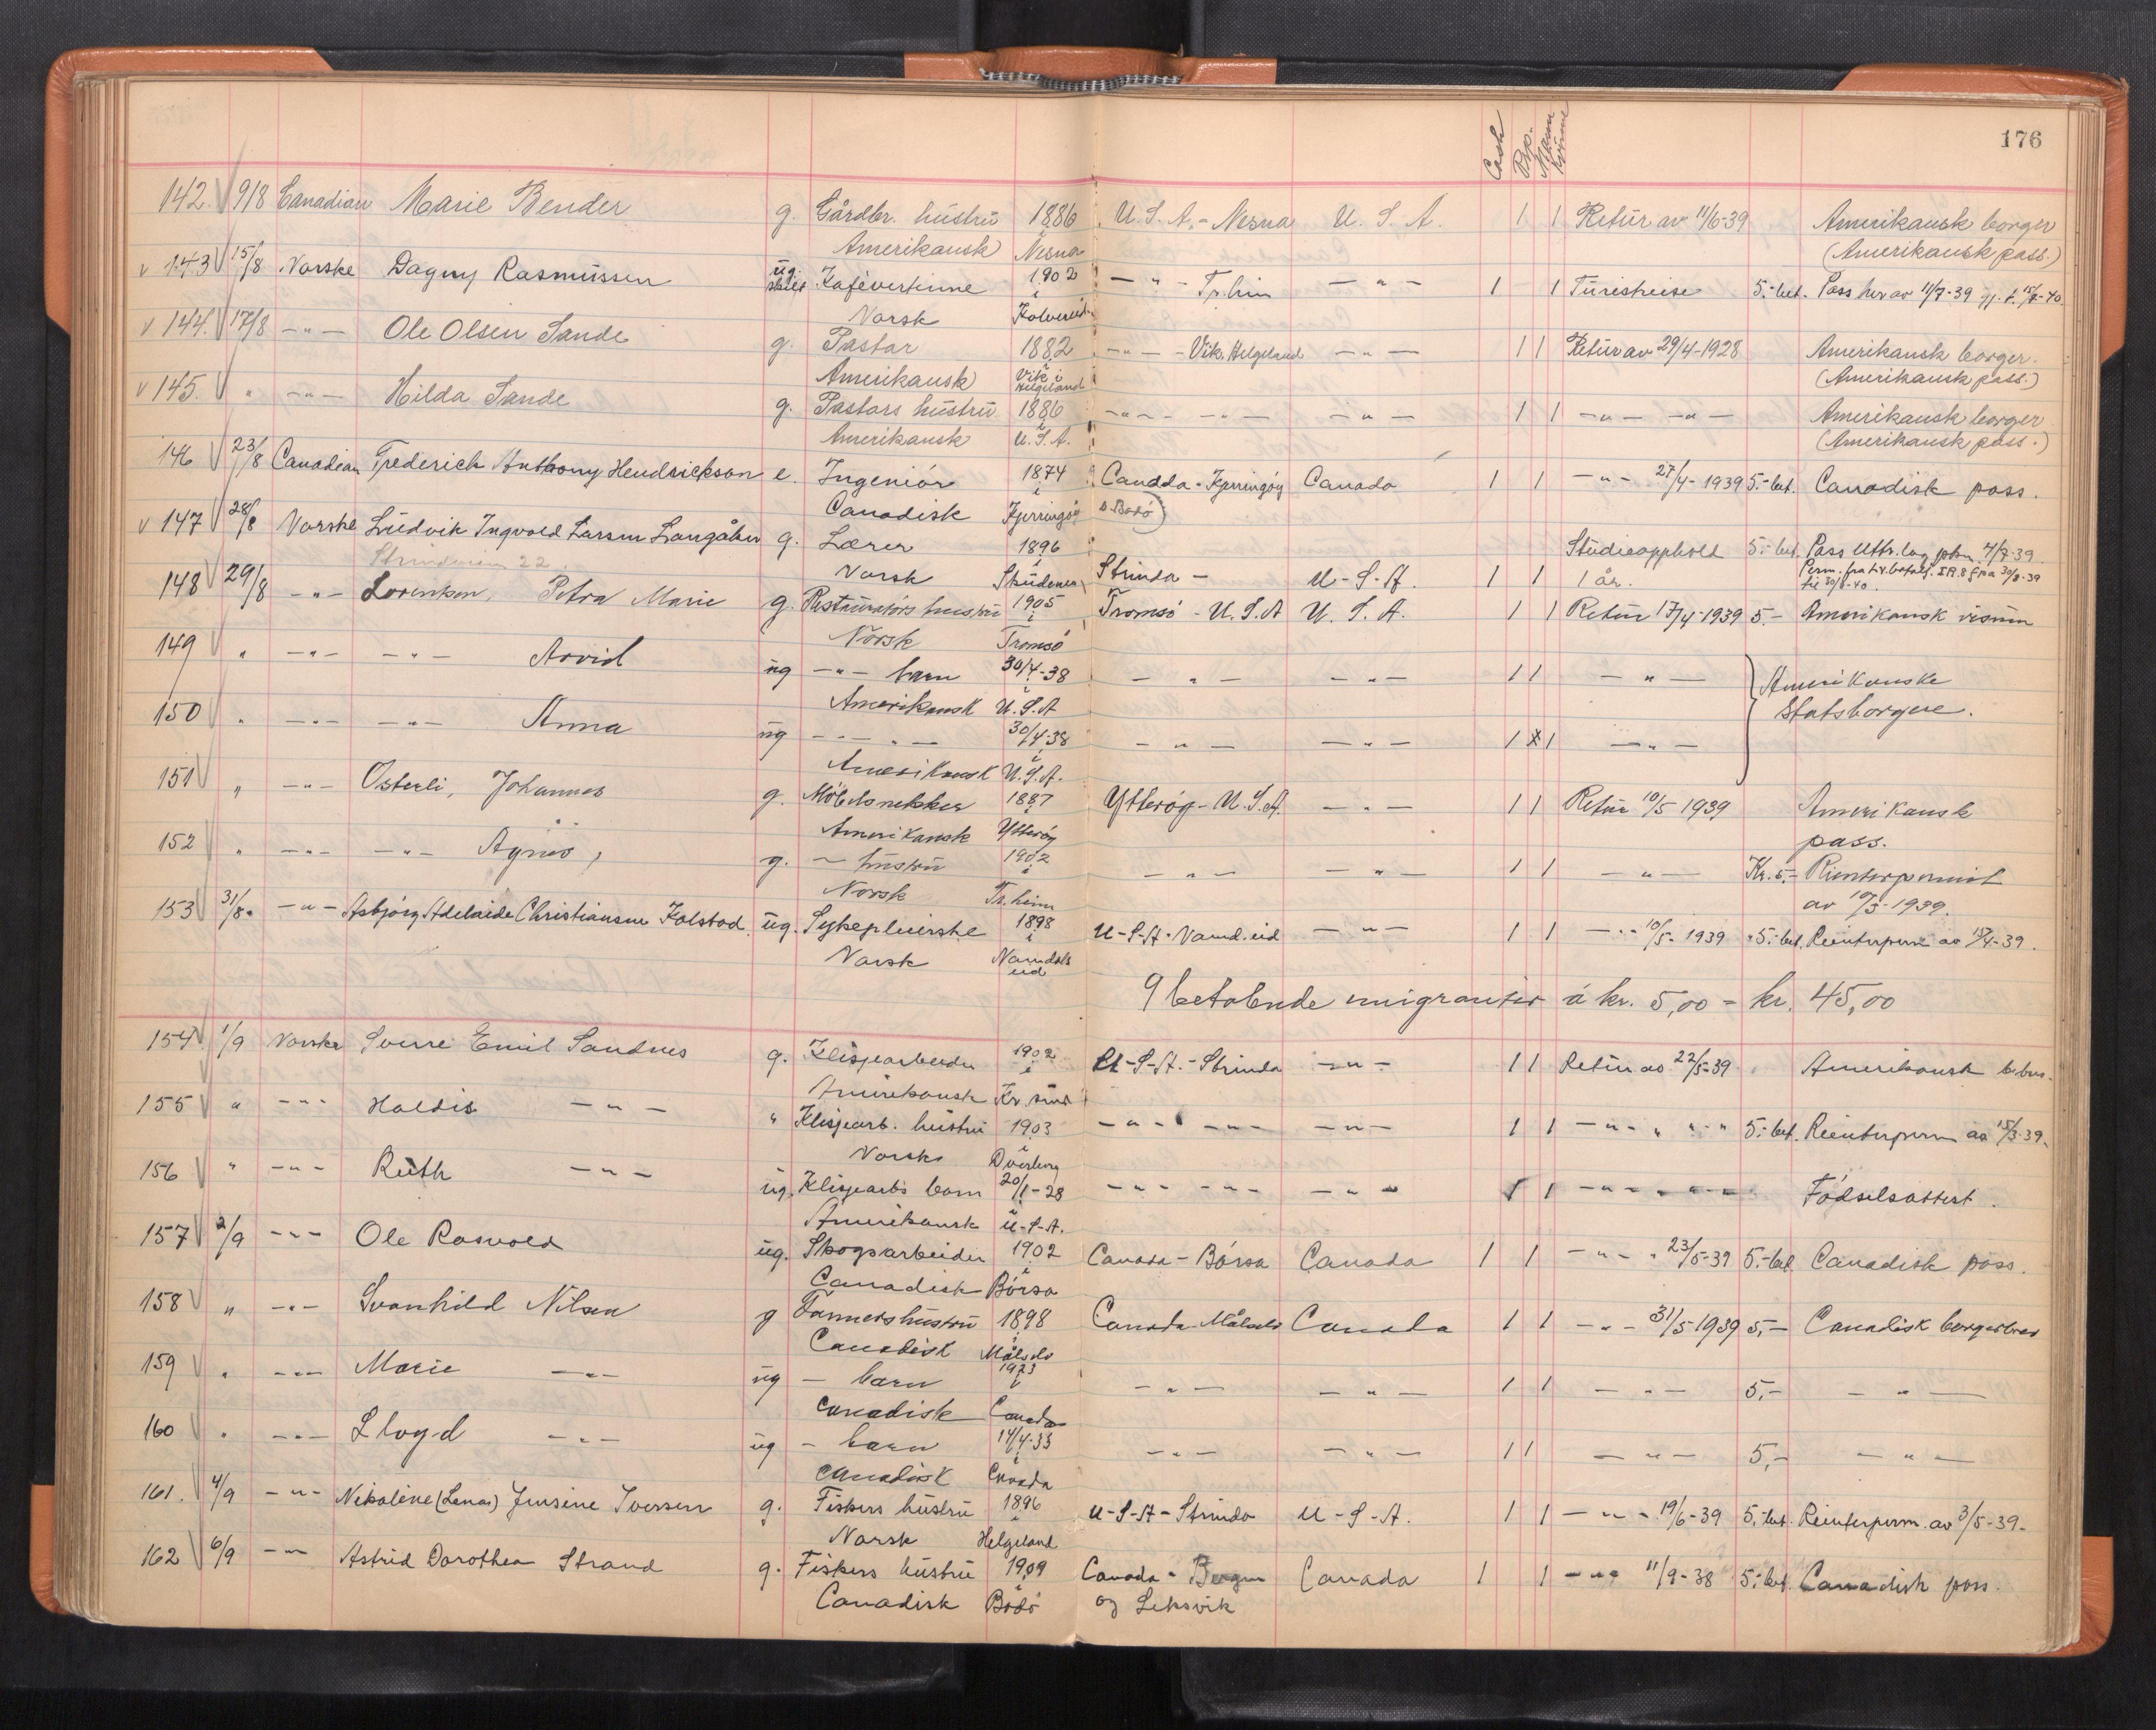 176
Cash Ppd. Mann Kvinne
142. 9/8 Canadian Marie Bender g. Gårdbr. hustru 1886 U.S.A. - Nesna U.S.A. 1 1 Retur av 11/6-39 Amerikansk borger
Amerikansk i Nesna (Amerikansk pass.)
v 143 15/8 Norske Dagny Rasmussen ug. Kafévertinne 1902 -"- Tr.heim -"- 1 1 Turistreise 5.- bet. Pass her av 11/7-39 gj. t. 15/8-40.
Norsk i
v 144. 17/8 -"- Ole Olsen Sande g. Pastor 1882 -"- - Vik, Helgeland -"- 1 1 Retur av 29/4-1928 Amerikansk borger.
Amerikansk Vik i Helgeland (Amerikansk pass.)
v 145. " -"- Hilda Sande g. Pastors hustru 1886 -"- -"- -"- 1 1 -"- -"- Amerikansk borger
Amerikansk i U.S.A. (Amerikansk pass.)
146 23/8 Canadian Frederich Anthony Hendrickson e. Ingeniør 1874 Canada - Kjerringøy Canada 1 1 -"- 27/4-1939 5.- bet. Canadisk pass.
Canadisk i Kjerringøy p. Bodø
v 147 28/8 Norske Ludvik Ingvald Larsen Langåker g. Lærer 1896 Strinda - U-S-A. 1 1 Studieopphold 1 år. 5.- bet. Pass utst. 4/7-39.
Norsk i Skudenes
148 29/8 -"- Lorentsen, Petra Marie g. Restauratørs hustru 1905 Tromsø - U.S.A U.S.A. 1 1 Retur 17/4-1939 5.- Amerikansk visum
Norsk i Tromsø
149 " -"- -"- Arvid ug -"- barn 30/4-38 -"- -"- 1 1 -"- Amerikanske
Amerikansk i U.S.A statsborgere.
150 " -"- -"- Anna ug -"- 30/4-38 -"- -"- 1 x 1 -"-
Amerikansk i U.S.A.
151 " -"- Østerli, Johannes g. Møbelsnekker 1887 Ytterøy - U.S.A. -"- 1 1 Retur 10/5 1939 Amerikansk
Amerikansk i Ytterøy pass.
152 " -"- -"- Agnes, g. - hustru 1902 -"- -"- 1 1 -"- Kr. 5,- Rienterpermit
Norsk i Tr.heim av 10/3-1939.
153 31/8. -"- Asbjørg Adelaide Christiansen Kolstad. ug. Sykepleierske 1898 U-S-A - Namd.eid -"- 1 1 -"- 10/5-1939 5.- bet. Reenterperm av 15/4-39.
Norsk i Namdalseid
9 betalende emigranter á kr. 5,00 = kr. 45,00
154 1/9 Norske Sverre Emil Sandnes g. Klisjearbeider 1902 U-S-A. - Strinda -"- 1 1 Retur av 22/5-39 Amerikansk
Amerikansk i Kr.sund
155 " -"- Haldis -"- " Klisjearb. hustru 1903 -"- -"- -"- 1 1 -"- " " " 5.- bet. Reenterperm av 15/3-39.
Norsk i Dverberg
156 " -"- Ruth -"- ug. Klisjearb's barn 20/1-28 -"- -"- -"- 1 1 -"- Fødselsattest.
Amerikansk i U-S-A.
157 2/9 -"- Ole Rosvold ug. Skogsarbeider 1902 Canada - Børsa Canada 1 1 -"- " 23/5-39 5.- bet. Canadisk pass.
Canadisk i Børsa
158 " -"- Svanhild Nilsen g Farmershustru 1898 Canada - Målselv Canada 1 1 -"- 31/5-1939 5,- Canadisk borgerbrev
Canadisk i Målselv
159 " -"- Marie -"- ug - barn 1923 -"- -"- 1 1 -"- 5,- -"-
Canadisk i Canada
160 " -"- Lloyd -"- ug - barn 14/4-33 -"- -"- 1 1 -"- 5,- -"-
Canadisk i Canada
161. 4/9 -"- Nikoline (Lena) Jensine Iversen g. Fiskers hustru 1896 U-S-A - Strinda U-S-A. 1 1 -"- 19/6-39 5.- bet. Reenterperm. av 3/5-39.
Norsk i Helgeland
162 6/9 -"- Astrid Dorothea Strand g. Fiskers hustru 1909 Canada - Bergen Canada 1 1 -"- 11/9-38 5.- bet. Canadisk pass.
Canadisk i Bodø og Leksvik